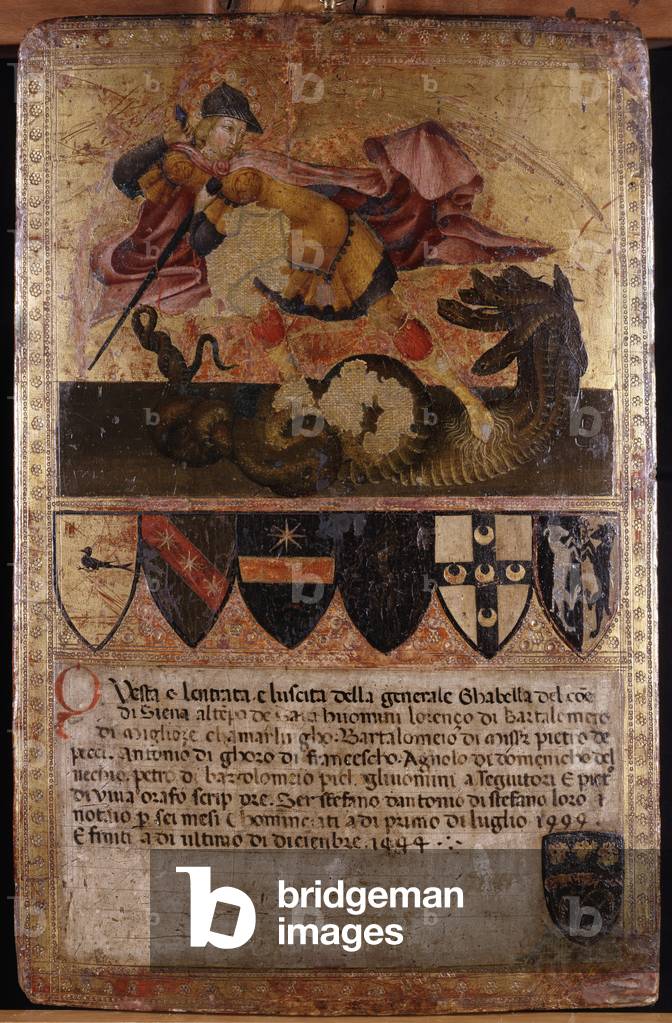 Questa e lentrata e luscita della generale Ghabella del coē
di Siena altēpo de Savi huomini lorenço di Bartalomeio
di Miglioze chamarlīgho. Bartalomeio di Missz pietro de
pecci. Antonio di ghoro di francescho. Agnolo di domenicho del
vechio. petro di bartolomeio piel. gliuomini a seguitori E piet
di viva orafo scrip dre. Ser stefano dantonio di stefano loro
notaio p sei mesi Chominciati adi primo di luglio 1444.
E finiti adi ultimo di dicienbre. 1444
b bridgeman
images